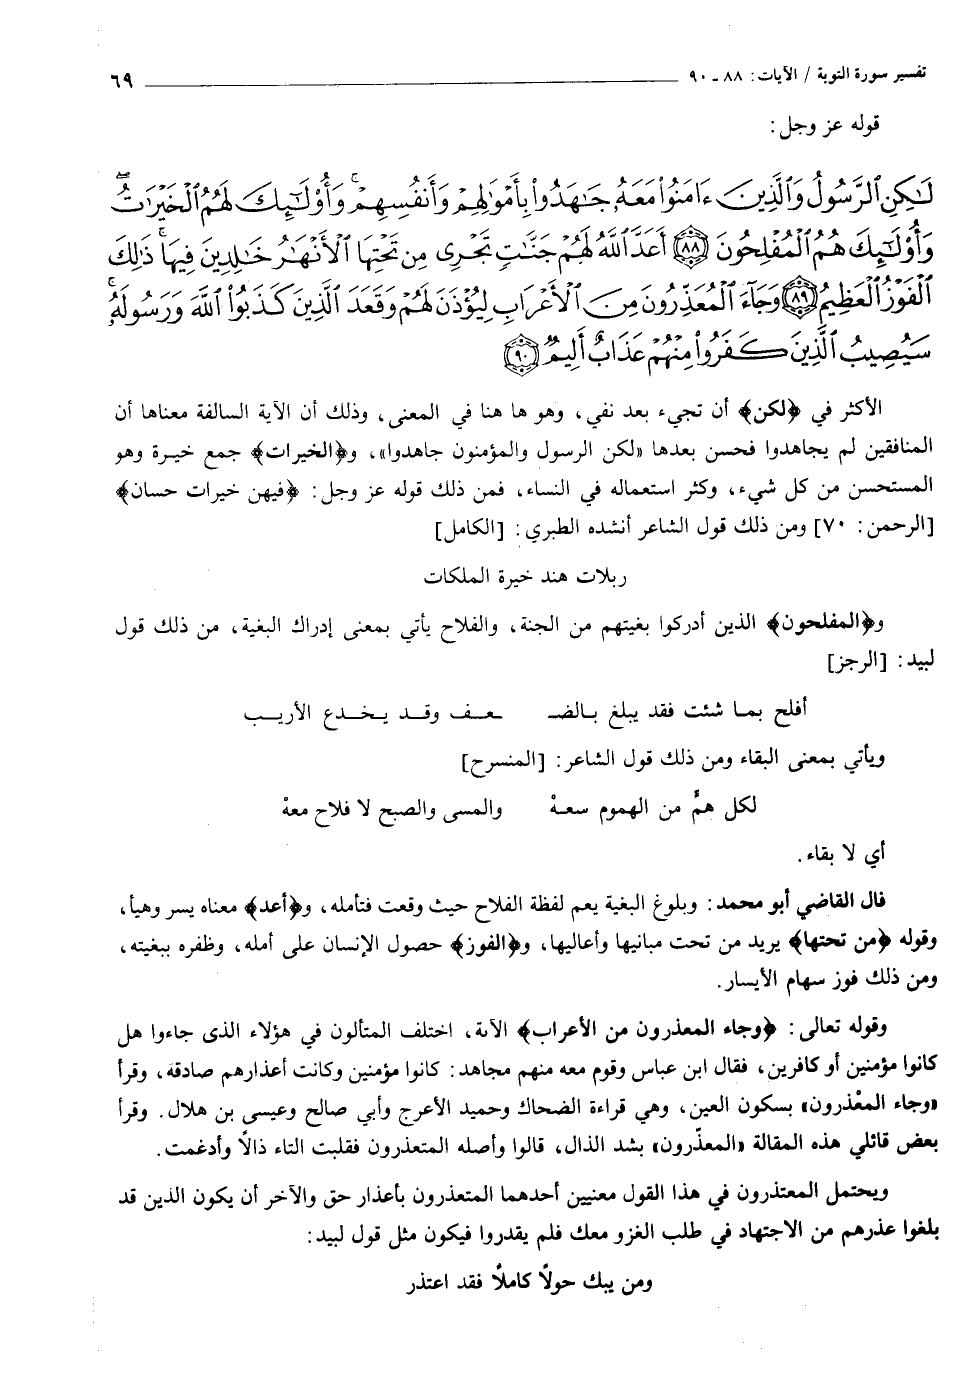 تفسير سورة التوبة / الآيات: ٨٨ ـ ٩٠ ٦٩
قوله عز وجل:
لَٰكِنِ ٱلرَّسُولُ وَٱلَّذِينَ ءَامَنُوا۟ مَعَهُۥ جَٰهَدُوا۟ بِأَمْوَٰلِهِمْ وَأَنفُسِهِمْ ۚ وَأُو۟لَٰٓئِكَ لَهُمُ ٱلْخَيْرَٰتُ ۖ
وَأُو۟لَٰٓئِكَ هُمُ ٱلْمُفْلِحُونَ ٨٨ أَعَدَّ ٱللَّهُ لَهُمْ جَنَّٰتٍ تَجْرِى مِن تَحْتِهَا ٱلْأَنْهَٰرُ خَٰلِدِينَ فِيهَا ۚ ذَٰلِكَ
ٱلْفَوْزُ ٱلْعَظِيمُ ٨٩ وَجَآءَ ٱلْمُعَذِّرُونَ مِنَ ٱلْأَعْرَابِ لِيُؤْذَنَ لَهُمْ وَقَعَدَ ٱلَّذِينَ كَذَبُوا۟ ٱللَّهَ وَرَسُولَهُۥ ۚ
سَيُصِيبُ ٱلَّذِينَ كَفَرُوا۟ مِنْهُمْ عَذَابٌ أَلِيمٌ ٩٠
الأكثر في ﴿لكن﴾ أن تجيء بعد نفي، وهو ها هنا في المعنى، وذلك أن الآية السالفة معناها أن
المنافقين لم يجاهدوا فحسن بعدها «لكن الرسول والمؤمنون جاهدوا»، و﴿الخيرات﴾ جمع خيرة وهو
المستحسن من كل شيء، وكثر استعماله في النساء، فمن ذلك قوله عز وجل: ﴿فيهن خيرات حسان﴾
[الرحمن: ٧٠] ومن ذلك قول الشاعر أنشده الطبري: [الكامل]
ربلات هند خيرة الملكات
و﴿المفلحون﴾ الذين أدركوا بغيتهم من الجنة، والفلاح يأتي بمعنى إدراك البغية، من ذلك قول
لبيد: [الرجز]
أفلح بمـا شئت فقد يبلغ بـالضـ ـعـف وقـد يـخـدع الأريـب
ويأتي بمعنى البقاء ومن ذلك قول الشاعر: [المنسرح]
لكل همٍّ من الهموم سعـهْ والمسى والصبح لا فلاح معهْ
أي لا بقاء.
قال القاضي أبو محمد: وبلوغ البغية يعم لفظة الفلاح حيث وقعت فتأمله، و﴿أعد﴾ معناه يسر وهيأ،
وقوله ﴿من تحتها﴾ يريد من تحت مبانيها وأعاليها، و﴿الفوز﴾ حصول الإنسان على أمله، وظفره ببغيته،
ومن ذلك فوز سهام الأيسار.
وقوله تعالى: ﴿وجاء المعذرون من الأعراب﴾ الآية، اختلف المتألون في هؤلاء الذى جاءوا هل
كانوا مؤمنين أو كافرين، فقال ابن عباس وقوم معه منهم مجاهد: كانوا مؤمنين وكانت أعذارهم صادقة، وقرأ
«وجاء المعْذرون» بسكون العين، وهي قراءة الضحاك وحميد الأعرج وأبي صالح وعيسى بن هلال. وقرأ
بعض قائلي هذه المقالة «المعذّرون» بشد الذال، قالوا وأصله المتعذرون فقلبت التاء ذالاً وأدغمت.
ويحتمل المعتذرون في هذا القول معنيين أحدهما المتعذرون بأعذار حق والآخر أن يكون الذين قد
بلغوا عذرهم من الاجتهاد في طلب الغزو معك فلم يقدروا فيكون مثل قول لبيد:
ومن يبك حولاً كاملاً فقد اعتذر